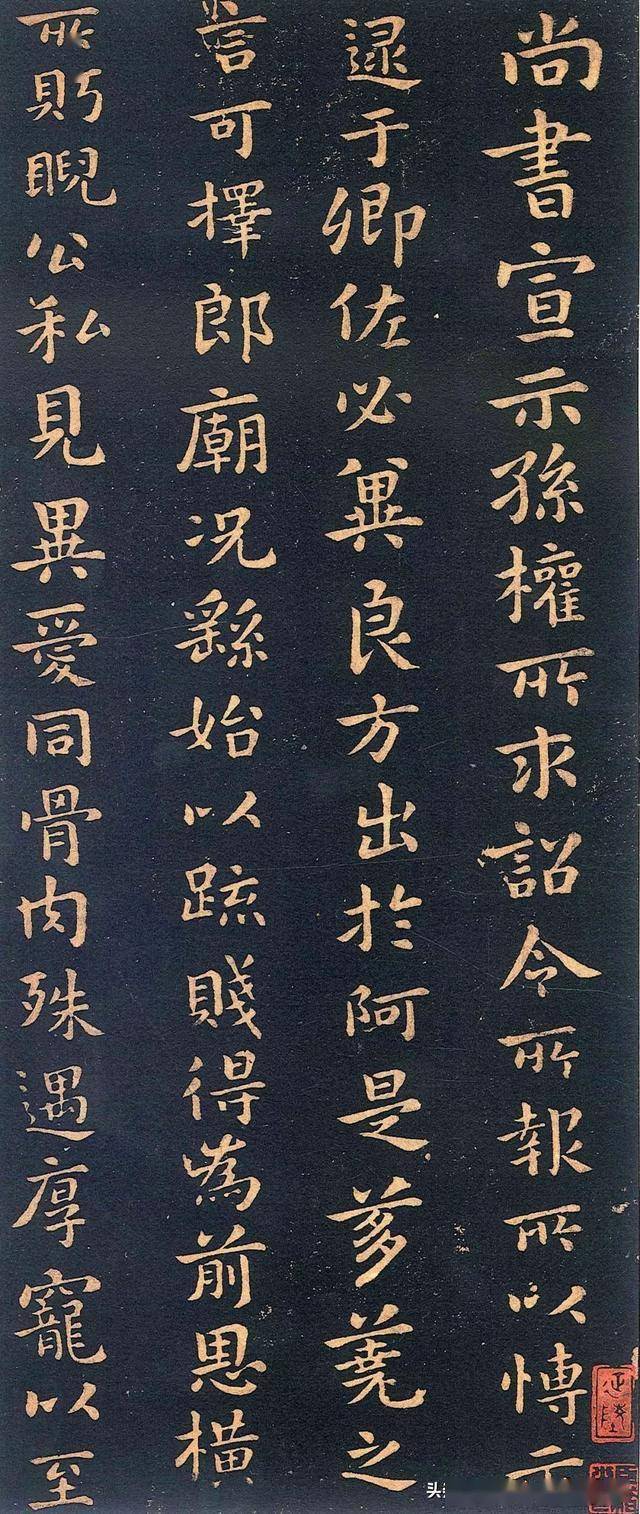 尚書宣示孫權所求詔令所報所以愽示
逮于卿佐必冀良方出於阿是芻蕘之
言可擇郎廟況繇始以疏賤得為前恩橫
所眄睨公私見異愛同骨肉殊遇厚寵以至
头